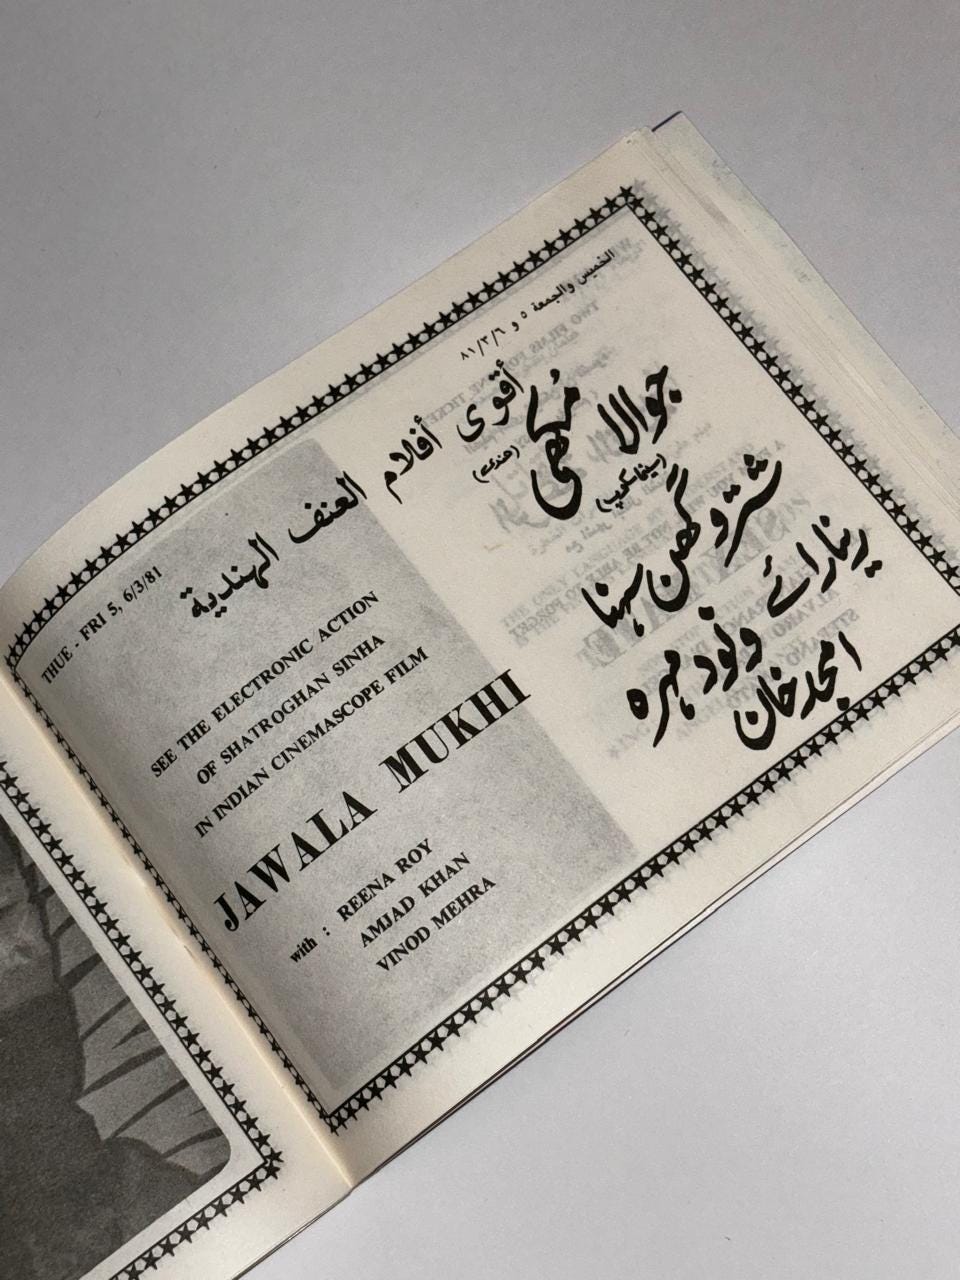 الخميس والجمعة ٥ و ٨١/٣/٦
أقوى أفلام العنف الهندية
جوالا مُکھی
(سینماسکوپ) (هندى)
شتروگھن سہنا
رینا رائے
ونود مہرہ
امجد خان
THUE - FRI 5, 6/3/81
SEE THE ELECTRONIC ACTION
OF SHATROGHAN SINHA
IN INDIAN CINEMASCOPE FILM
JAWALA MUKHI
with : REENA ROY
AMJAD KHAN
VINOD MEHRA